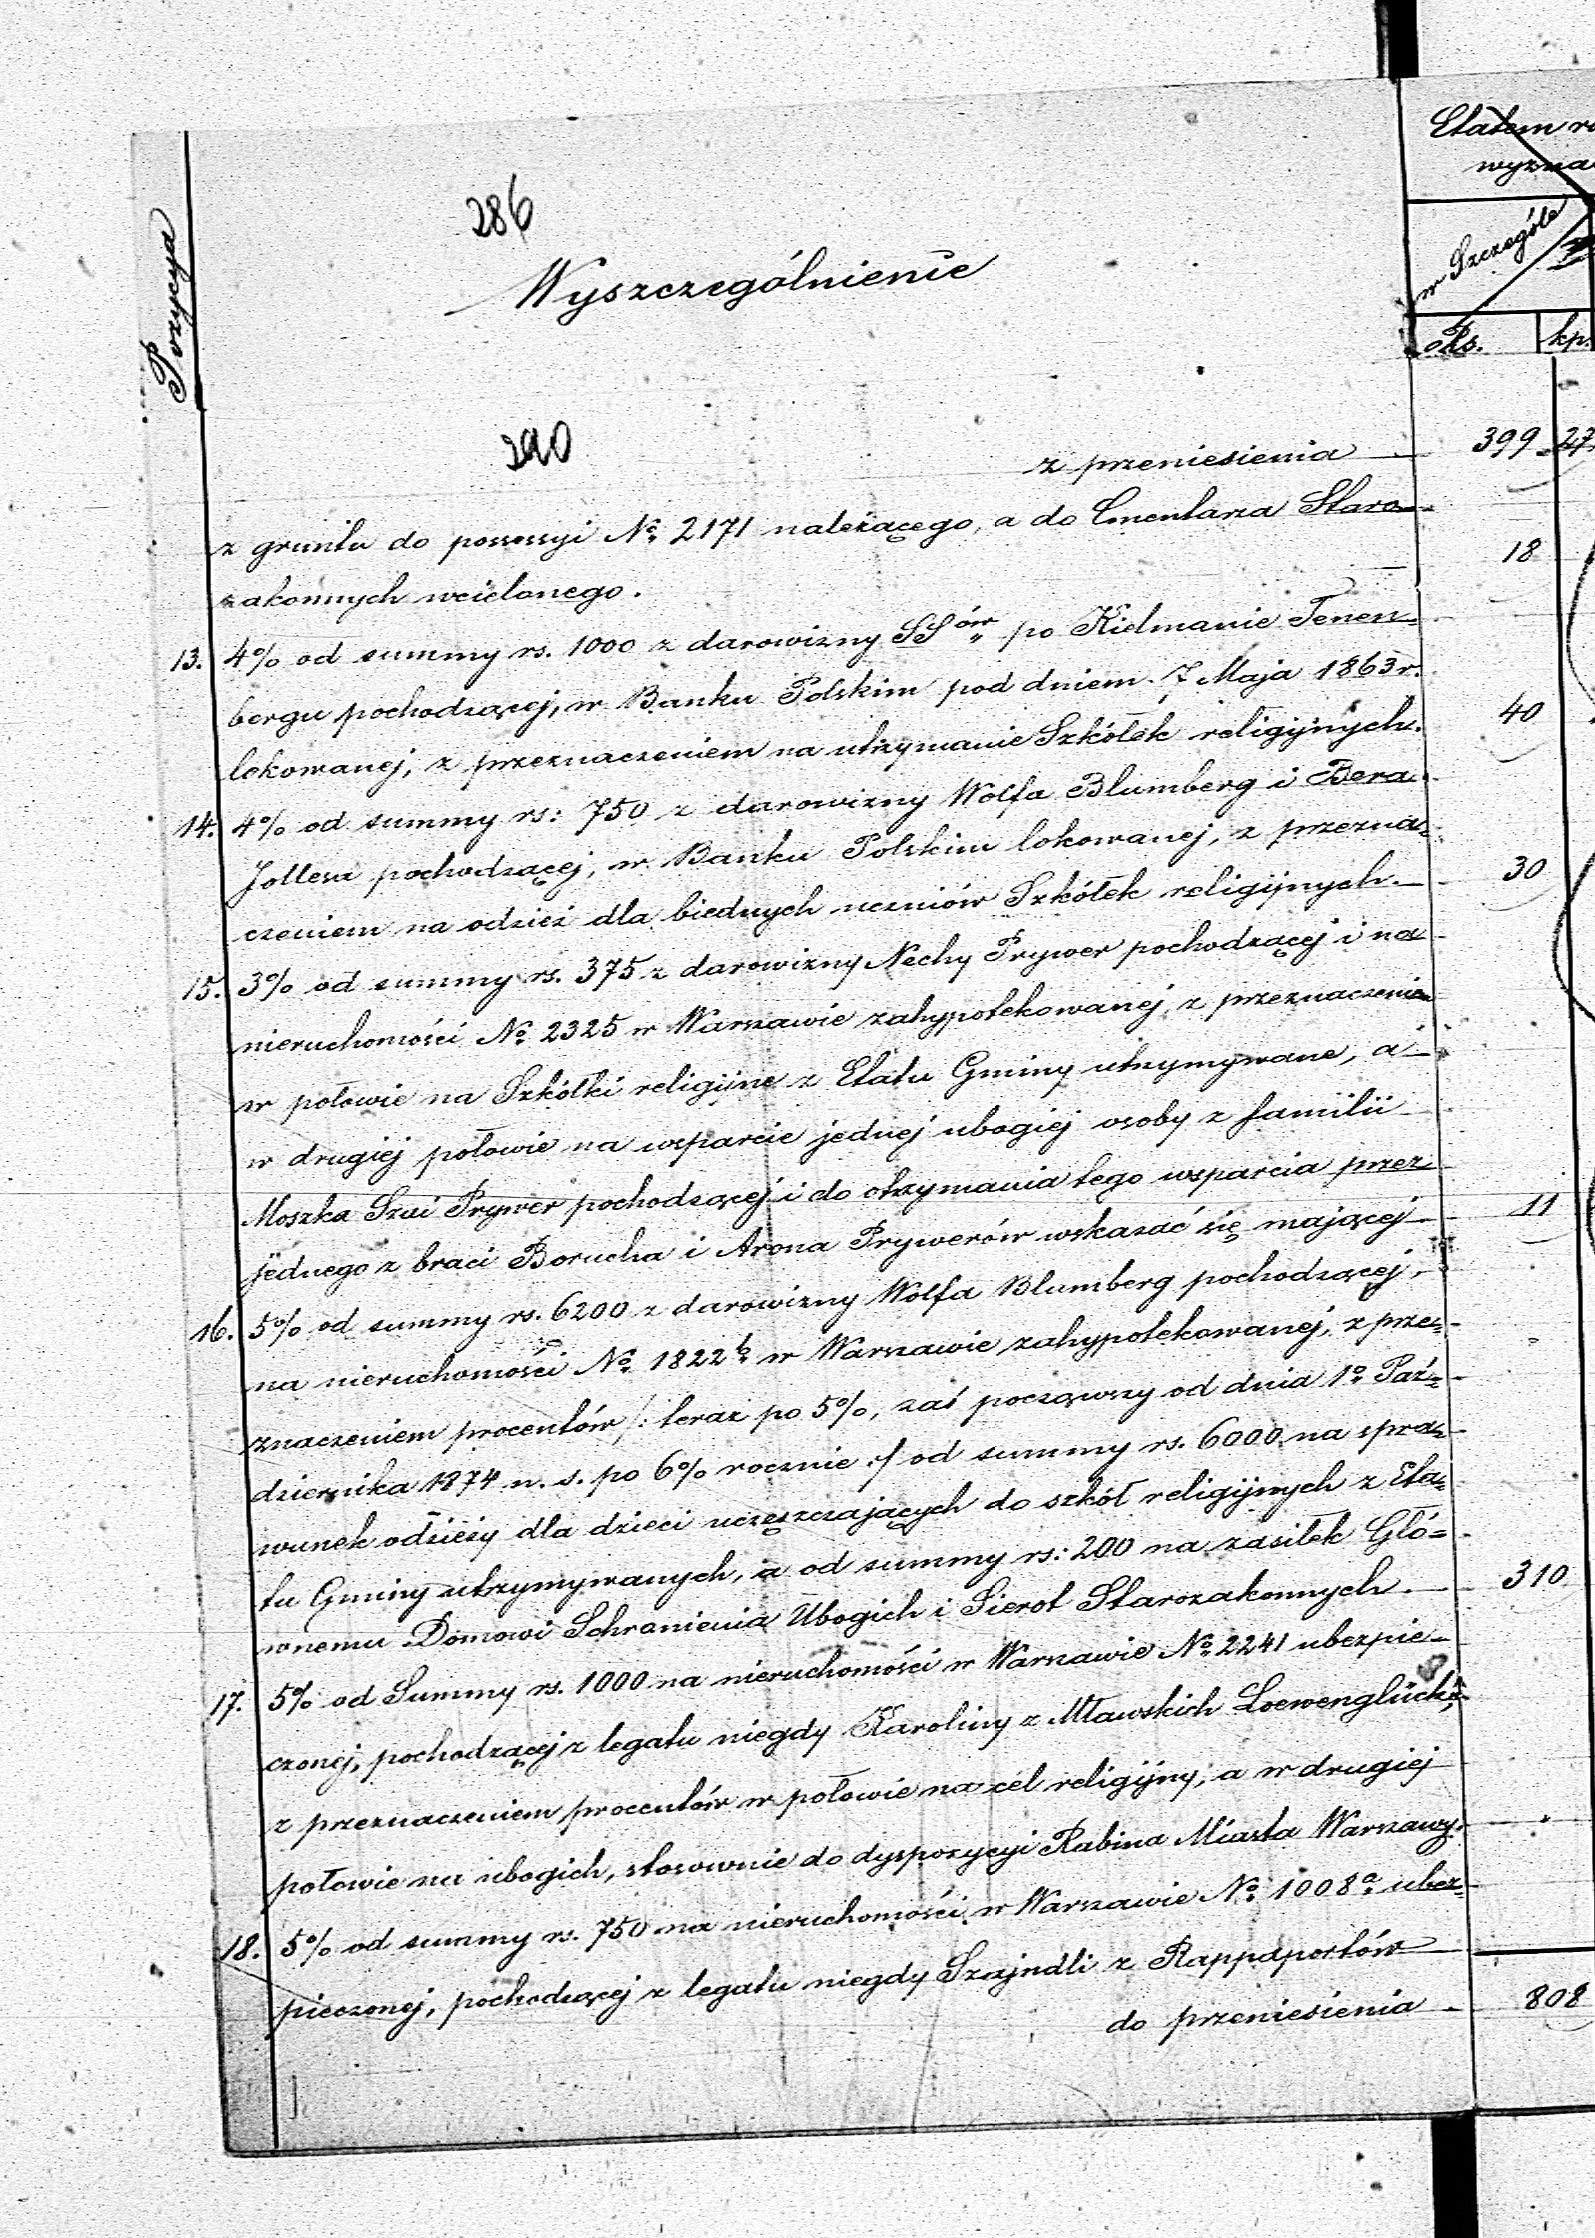 Etatem
wyzna
286
Pozycya
Wyszczególnienie
w Szczególe
Rs. kp.
290
z przeniesienia 399 27
z gruntu do possessyi No 2171 należącego, a do Cmentarza Staro-
zakonnych wcielonego. 18
13. 4% od summy rs. 1000 z darowizny SSów po Kielmanie Tenen=
bergu pochodzącej, w Banku Polskim pod dniem 7 Maja 1863 r.
lokowanej, z przeznaczeniem na utrzymanie Szkółek religijnych. 40
14. 4% od summy rs: 750 z darowizny Wolfa Blumberg i Bera
Jollesa pochodzącej, w Banku Polskim lokowanej, z przezna=
czeniem na odzież dla biednych uczniów Szkółek religijnych. 30
15. 3% od summy rs. 375 z darowizny Nechy Prywer pochodzącej i na
nieruchomości No 2325 w Warszawie zahypotekowanej, z przeznaczeniem
w połowie na Szkółki religijne z Etatu Gminy utrzymywane, a
w drugiej połowie na wsparcie jednej ubogiej osoby z familii
Moszka Szui Prywer pochodzącej i do otrzymania tego wsparcia przez
jednego z braci Borucha i Arona Prywerów wskazać się mającej 11
16. 5% od summy rs. 6200 z darowizny Wolfa Blumberg pochodzącej,
na nieruchomości No 1822b w Warszawie zahypotekowanej, z prze=
znaczeniem procentów /: teraz po 5%, zaś począwszy od dnia 1o Paź=
dziernika 1874 n. s. po 6% rocznie :/ od summy rs. 6000 na spra=
wunek odzieży dla dzieci uczęszczających do szkół religijnych z Eta=
tu Gminy utrzymywanych, a od summy rs: 200 na zasiłek Głó=
wnemu Domowi Schronienia Ubogich i Sierot Starozakonnych 310
17. 5% od Summy rs. 1000 na nieruchomości w Warszawie No 2241 ubezpie-
czonej, pochodzącej z legatu niegdy Karoliny z Mławskich Loewenglück,
z przeznaczeniem procentów w połowie na cel religijny, a w drugiej
połowie na ubogich, stosownie do dyspozycyi Rabina Miasta Warszawy.
18. 5% od summy rs. 750 na nieruchomości w Warszawie No 1008a ubez=
pieczonej, pochodzącej z legatu niegdy Szajndli z Rappaportów
do przeniesienia 808